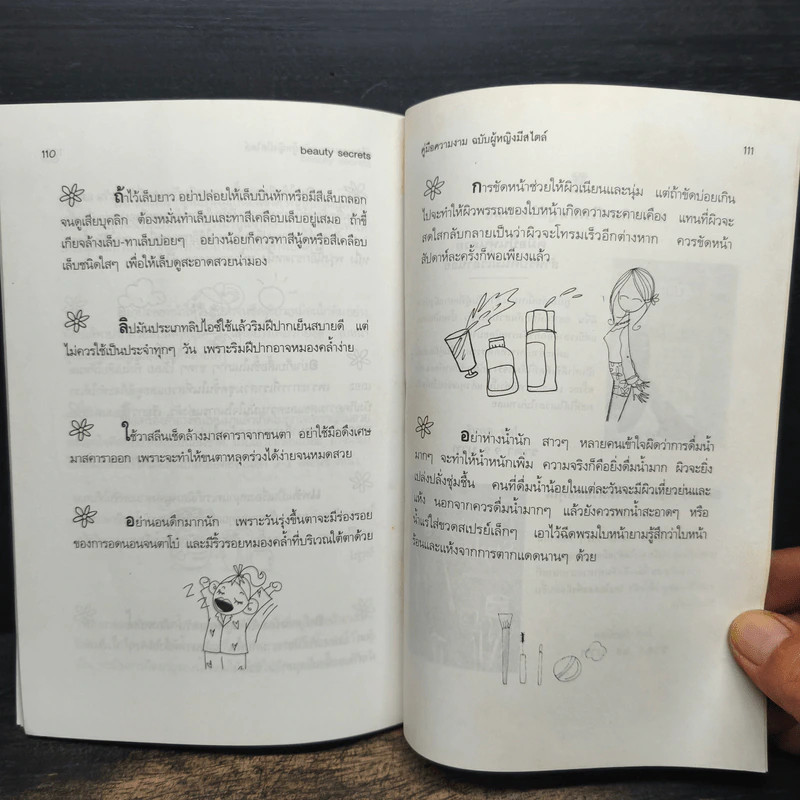 110
beauty secrets
ถ้าไว้เล็บยาว อย่าปล่อยให้เล็บบิ่นหักหรือมีสีเล็บถลอก
จนดูเสียบุคลิก ต้องหมั่นทำเล็บและทาสีเคลือบเล็บอยู่เสมอ ถ้าขี้
เกียจล้างเล็บ-ทาเล็บบ่อยๆ อย่างน้อยก็ควรทาสีนู้ดหรือสีเคลือบ
เล็บชนิดใสๆ เพื่อให้เล็บดูสะอาดสวยน่ามอง
ลิปมันประเภทลิปไอซ์ใช้แล้วริมฝีปากเย็นสบายดี แต่
ไม่ควรใช้เป็นประจำทุกๆ วัน เพราะริมฝีปากอาจหมองคล้ำง่าย
ใช้วาสลีนเช็ดล้างมาสคาราจากขนตา อย่าใช้มือดึงเศษ
มาสคาราออก เพราะจะทำให้ขนตาหลุดร่วงได้ง่ายจนหมดสวย
อย่านอนดึกมากนัก เพราะวันรุ่งขึ้นตาจะมีร่องรอย
ของการอดนอนจนตาโบ๋ และมีริ้วรอยหมองคล้ำที่บริเวณใต้ตาด้วย
Z Z Z
คู่มือความงาม ฉบับผู้หญิงมีสไตล์
111
การขัดหน้าช่วยให้ผิวเนียนและนุ่ม แต่ถ้าขัดบ่อยเกิน
ไปจะทำให้ผิวพรรณของใบหน้าเกิดความระคายเคือง แทนที่ผิวจะ
สดใสกลับกลายเป็นว่าผิวจะโทรมเร็วอีกต่างหาก ควรขัดหน้า
สัปดาห์ละครั้งก็พอเพียงแล้ว
อย่าห่างน้ำนัก สาวๆ หลายคนเข้าใจผิดว่าการดื่มน้ำ
มากๆ จะทำให้น้ำหนักเพิ่ม ความจริงก็คือยิ่งดื่มน้ำมาก ผิวจะยิ่ง
เปล่งปลั่งชุ่มชื้น คนที่ดื่มน้ำน้อยในแต่ละวันจะมีผิวเหี่ยวย่นและ
แห้ง นอกจากควรดื่มน้ำมากๆ แล้วยังควรพกน้ำสะอาดๆ หรือ
น้ำแร่ใส่ขวดสเปรย์เล็กๆ เอาไว้ฉีดพรมใบหน้ายามรู้สึกว่าใบหน้า
ร้อนและแห้งจากการตากแดดนานๆ ด้วย